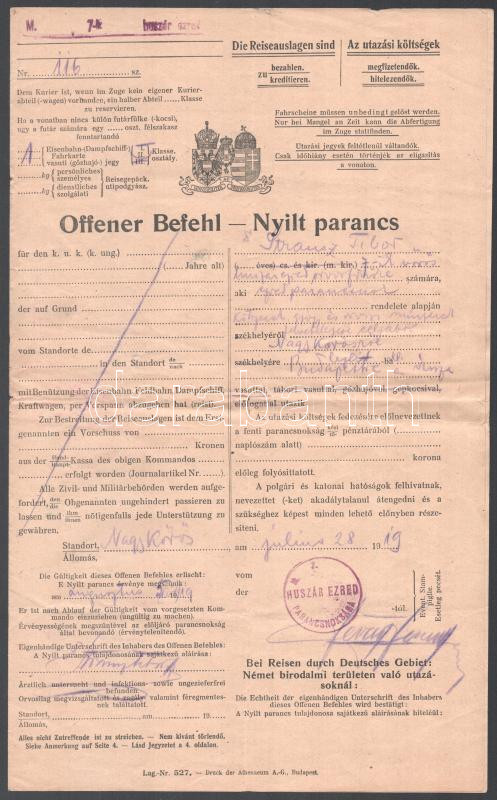 M. 7-k huszár ezred
Nr. 116 sz.
Dem Kurier ist, wenn im Zuge kein eigener Kurier-
abteil (-wagen) vorhanden, ein halber Abteil Klasse
zu reservieren.
Ha a vonatban nincs külön futárfülke (-kocsi),
ugy a futár számára egy oszt. félszakasz
fenntartandó
1 Eisenbahn-(Dampfschiff-)
Fahrkarte
vasuti (gőzhajó) jegy
II Klasse,
osztály.
kg persönliches
személyi
kg dienstliches
szolgálati
Reisegepäck,
utipodgyász.
Die Reiseauslagen sind
zu bezahlen.
kreditieren.
Az utazási költségek
megfizetendők.
hitelezendők.
Fahrscheine müssen unbedingt gelöst werden.
Nur bei Mangel an Zeit kann die Abfertigung
im Zuge stattfinden.
Utazási jegyek feltétlenül váltandók.
Csak időhiány esetén történjék az eligazítás
a vonaton.
Offener Befehl — Nyilt parancs
für den k. u. k. (k. ung.)
( Jahre alt)
der auf Grund
vom Standorte de
in den Standort de
nach
mit Benützung der Eisenbahn, Feldbahn, Dampfschiff,
Kraftwagen, per Vorspann abzugehen hat (reist).
Zur Bestreitung der Reiseauslagen ist dem Ers-
genannten ein Vorschuss von
Kronen
aus der Hand-
Haupt- Kassa des obigen Kommandos
erfolgt worden (Journalartikel Nr. )
Alle Zivil- und Militärbehörden werden aufge-
fordert, den
die Obgenannten ungehindert passieren zu
lassen und ihm
ihnen nötigenfalls jede Unterstützung zu
gewähren.
Standort,
Állomás, Nagykőrös
Strausz Tibor
éves) cs. és kir. (m. kir.)
számára,
aki
rendelete alapján
székhelyéről Nagykőrösről
székhelyére Budapestre
vasuttal, tábori vasuttal, gőzhajóval, gépkocsival,
előfogattal utazik.
Az utazási költségek fedezésére előlnevezettnek
a fenti parancsnokság kézi
fő- pénztárából (
naplószám alatt)
korona
előleg folyósíttatott.
A polgári és katonai hatóságok felhivatnak,
nevezettet (-ket) akadálytalanul átengedni és a
szükséghez képest minden lehető előnyben része-
síteni.
am július 28 1919
Die Gültigkeit dieses Offenen Befehles erlischt:
E Nyilt parancs érvénye megszünik:
augusztus 1919
Er ist nach Ablauf der Gültigkeit vom vorgesetzten Kom-
mando einzuziehen (ungültig zu machen).
Érvényességének megszüntével az elöljáró parancsnokság
által bevonandó (érvénytelenítendő).
Eigenhändige Unterschrift des Inhabers des Offenen Befehles:
A Nyilt parancs tulajdonosának sajátkezü aláirása:
Ärztlich untersucht und infektions- sowie ungezieferfrei
befunden.
Orvosilag megvizsgáltatott és ragály valamint féregmentes-
nek találtatott.
Standort,
Állomás, am 19
Alles nicht Zutreffende ist zu streichen. — Nem kivánt törlendő.
Siehe Anmerkung auf Seite 4. — Lásd Jegyzetet a 4. oldalon.
vom
der -tól.
M. 7.
HUSZÁR EZRED
PARANCSNOKSÁGA
Event. Stam-
piglie.
Esetleg pecsét.
Bei Reisen durch Deutsches Gebiet:
Német birodalmi területen való utazá-
soknál:
Die Echtheit der eigenhändigen Unterschrift des Inhabers
dieses Offenen Befehles wird bestätigt:
A Nyilt parancs tulajdonosa sajátkezü aláirásának hiteléül:
Lag.-Nr. 527. — Druck der Athenaeum A.-G., Budapest.
darabanth